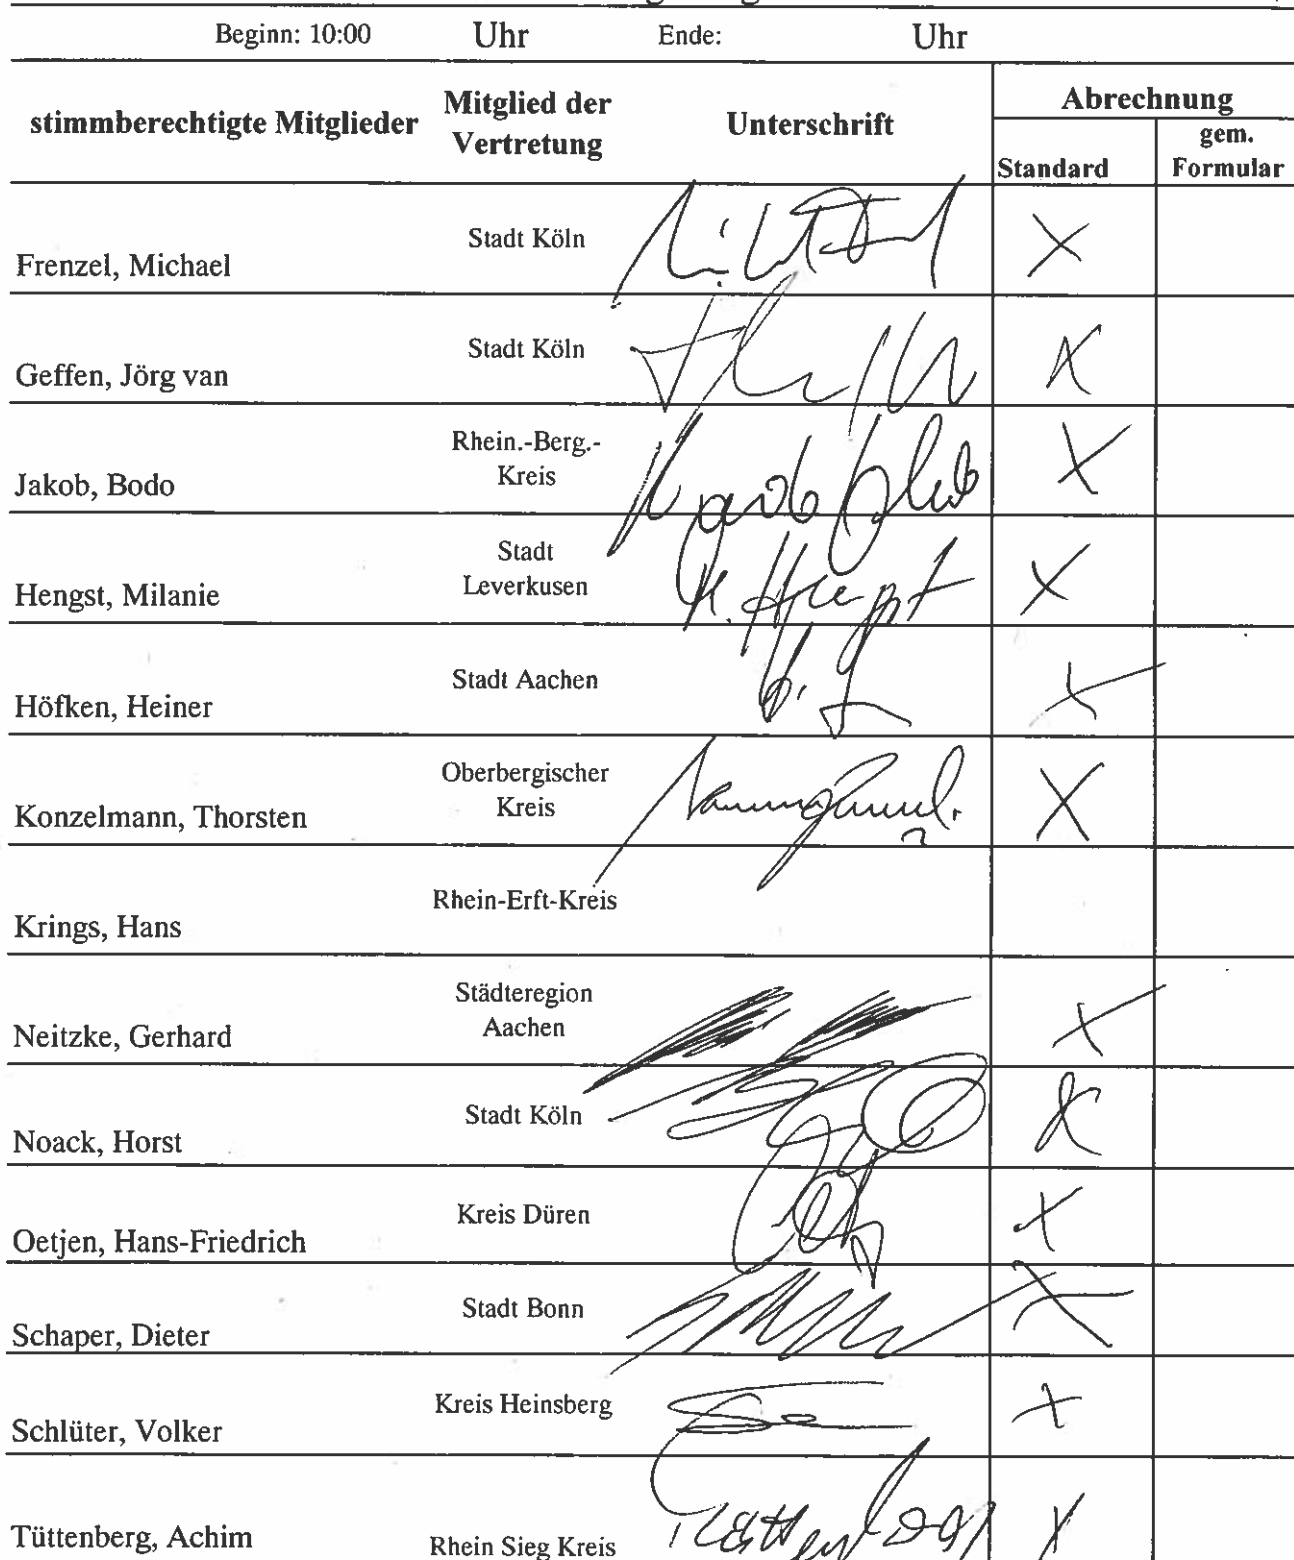 Beginn: 10:00 Uhr Ende: Uhr
stimmberechtigte Mitglieder Mitglied der Vertretung Unterschrift Abrechnung
Standard gem. Formular
Frenzel, Michael Stadt Köln X
Geffen, Jörg van Stadt Köln X
Jakob, Bodo Rhein.-Berg.-
Kreis X
Hengst, Milanie Stadt
Leverkusen X
Höfken, Heiner Stadt Aachen X
Konzelmann, Thorsten Oberbergischer
Kreis X
Krings, Hans Rhein-Erft-Kreis
Neitzke, Gerhard Städteregion
Aachen X
Noack, Horst Stadt Köln X
Oetjen, Hans-Friedrich Kreis Düren X
Schaper, Dieter Stadt Bonn X
Schlüter, Volker Kreis Heinsberg X
Tüttenberg, Achim Rhein Sieg Kreis X